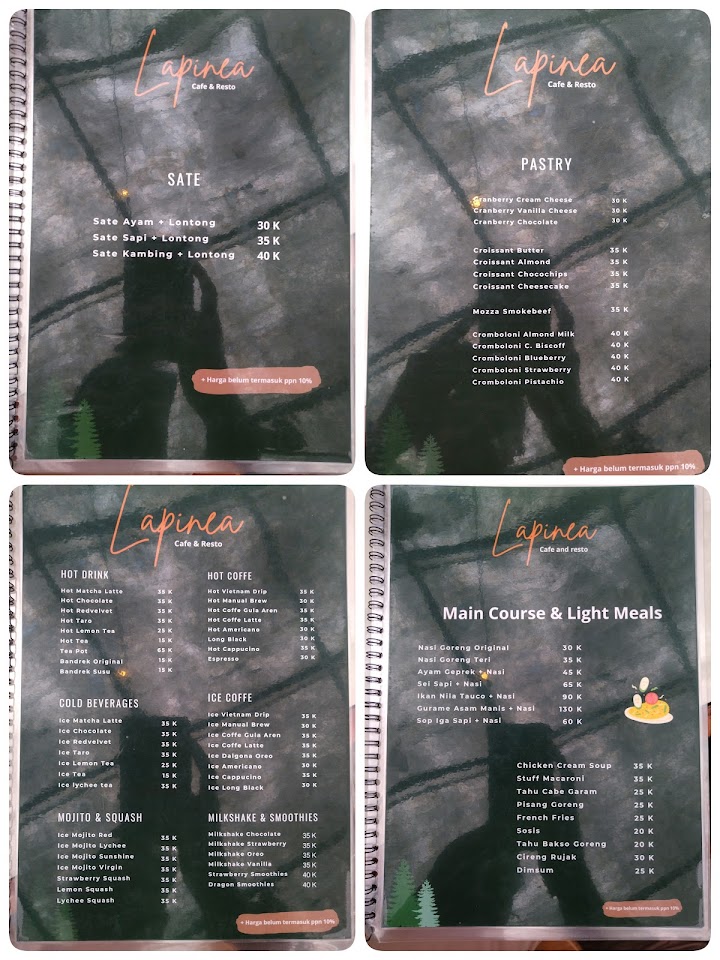 Lapinea
Cafe & Resto
SATE
Sate Ayam + Lontong 30 K
Sate Sapi + Lontong 35 K
Sate Kambing + Lontong 40 K
+ Harga belum termasuk ppn 10%
Lapinea
Cafe & Resto
PASTRY
Cranberry Cream Cheese 30 K
Cranberry Vanilla Cheese 30 K
Cranberry Chocolate 30 K
Croissant Butter 35 K
Croissant Almond 35 K
Croissant Chocochips 35 K
Croissant Cheesecake 35 K
Mozza Smokebeef 35 K
Cromboloni Almond Milk 40 K
Cromboloni C. Biscoff 40 K
Cromboloni Blueberry 40 K
Cromboloni Strawberry 40 K
Cromboloni Pistachio 40 K
+ Harga belum termasuk ppn 10%
Lapinea
Cafe & Resto
HOT DRINK
Hot Matcha Latte 35 K
Hot Chocolate 35 K
Hot Redvelvet 35 K
Hot Taro 35 K
Hot Lemon Tea 25 K
Hot Tea 15 K
Tea Pot 65 K
Bandrek Original 15 K
Bandrek Susu 15 K
HOT COFFE
Hot Vietnam Drip 35 K
Hot Manual Brew 30 K
Hot Coffe Gula Aren 35 K
Hot Coffe Latte 35 K
Hot Americano 30 K
Long Black 30 K
Hot Cappucino 35 K
Espresso 30 K
COLD BEVERAGES
Ice Matcha Latte 35 K
Ice Chocolate 35 K
Ice Redvelvet 35 K
Ice Taro 35 K
Ice Lemon Tea 25 K
Ice Tea 15 K
Ice lychee tea 35 K
ICE COFFE
Ice Vietnam Drip 35 K
Ice Manual Brew 30 K
Ice Coffe Gula Aren 35 K
Ice Coffe Latte 35 K
Ice Dalgona Oreo 35 K
Ice Americano 30 K
Ice Cappucino 35 K
Ice Long Black 30 K
MOJITO & SQUASH
Ice Mojito Red 35 K
Ice Mojito Lychee 35 K
Ice Mojito Sunshine 35 K
Ice Mojito Virgin 35 K
Strawberry Squash 35 K
Lemon Squash 35 K
Lychee Squash 35 K
MILKSHAKE & SMOOTHIES
Milkshake Chocolate 35 K
Milkshake Strawberry 35 K
Milkshake Oreo 35 K
Milkshake Vanilla 35 K
Strawberry Smoothies 40 K
Dragon Smoothies 40 K
+ Harga belum termasuk ppn 10%
Lapinea
Cafe and resto
Main Course & Light Meals
Nasi Goreng Original 30 K
Nasi Goreng Teri 35 K
Ayam Geprek + Nasi 45 K
Sei Sapi + Nasi 65 K
Ikan Nila Tauco + Nasi 90 K
Gurame Asam Manis + Nasi 130 K
Sop Iga Sapi + Nasi 60 K
Chicken Cream Soup 35 K
Stuff Macaroni 35 K
Tahu Cabe Garam 25 K
Pisang Goreng 25 K
French Fries 25 K
Sosis 20 K
Tahu Bakso Goreng 20 K
Cireng Rujak 30 K
Dimsum 25 K
+ Harga belum termasuk ppn 10%